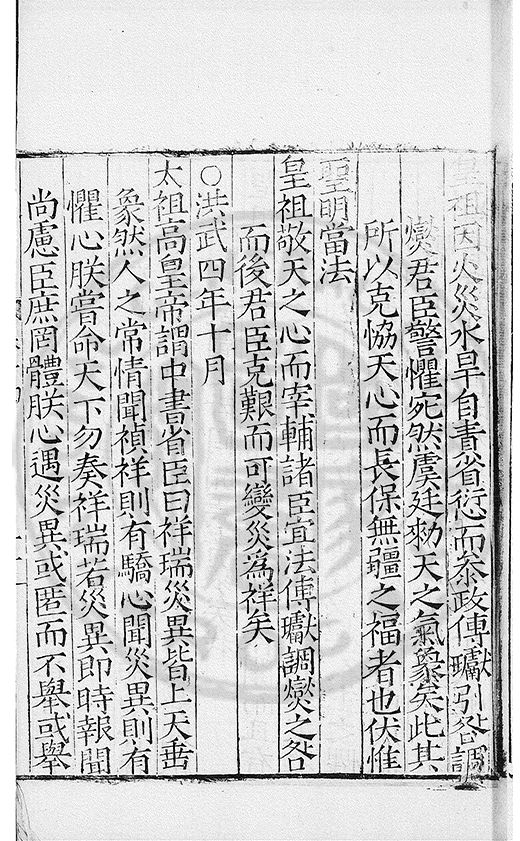 皇祖因火災水旱自責省愆而叅政傅瓛引咎調
燮君臣警懼宛然虞廷勑天之氣象矣此其
所以克恊天心而長保無疆之福者也伏惟
聖明當法
皇祖敬天之心而宰輔諸臣宜法傅瓛調燮之咎
而後君臣克艱而可變災為祥矣
○洪武四年十月
太祖高皇帝謂中書省臣曰祥瑞災異皆上天垂
象然人之常情聞禎祥則有驕心聞災異則有
懼心朕嘗命天下勿奏祥瑞若災異即時報聞
尚慮臣庶罔體朕心遇災異或匿而不舉或舉